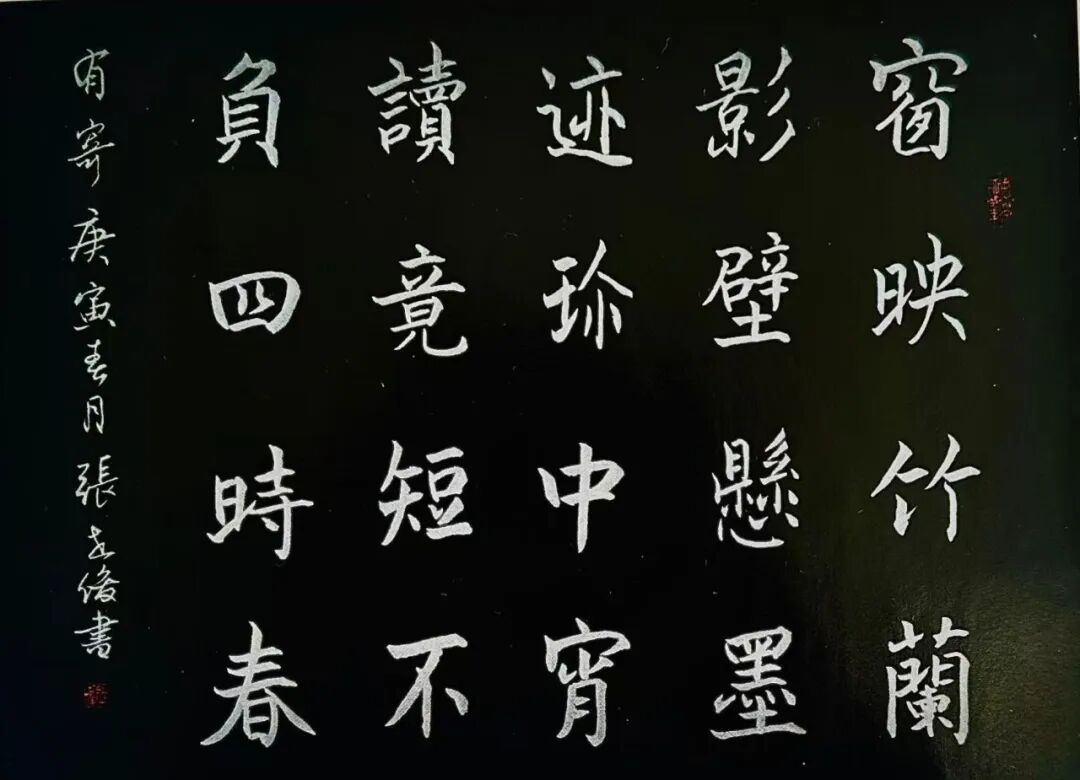 窗映竹蘭
影壁懸墨
迹珍中宵
讀竟短不
負四時春
有寄庚寅春月張書